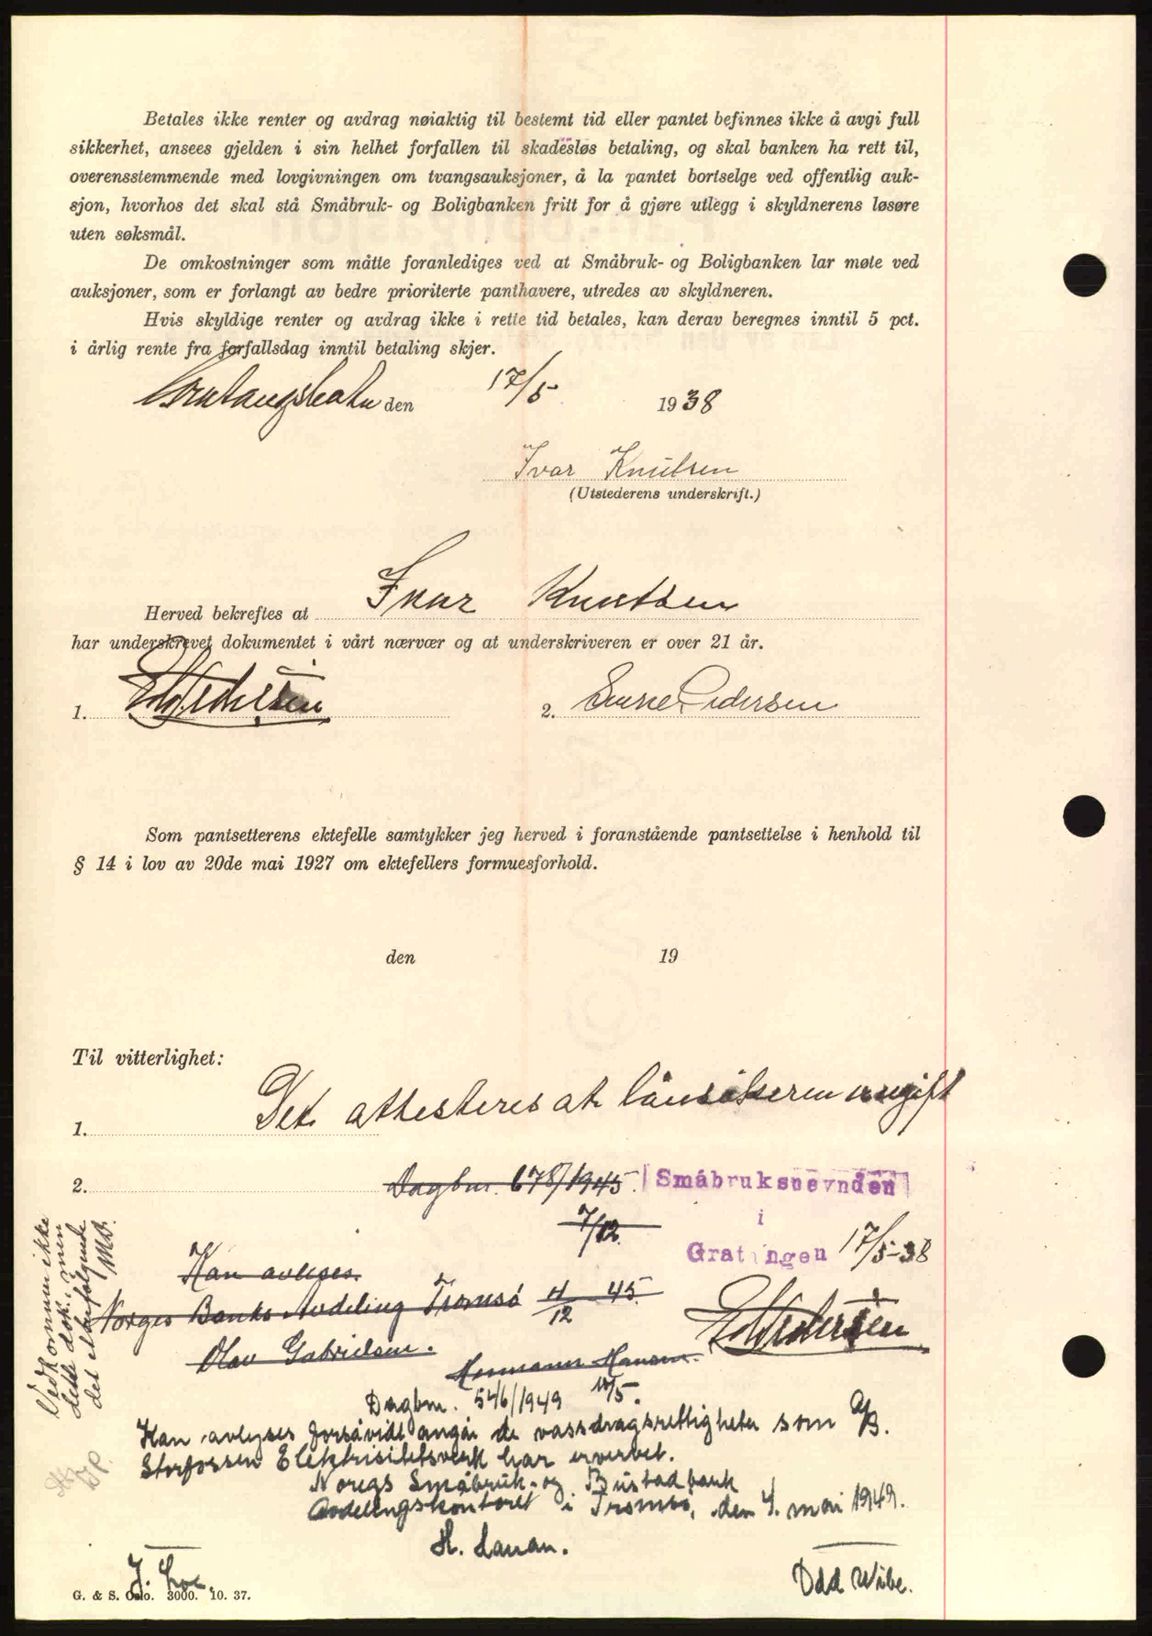 Betales ikke renter og avdrag nøiaktig til bestemt tid eller pantet befinnes ikke å avgi full
sikkerhet, ansees gjelden i sin helhet forfallen til skadesløs betaling, og skal banken ha rett til,
overensstemmende med lovgivningen om tvangsauksjoner, å la pantet bortselge ved offentlig auk-
sjon, hvorhos det skal stå Småbruk- og Boligbanken fritt for å gjøre utlegg i skyldnerens løsøre
uten søksmål.
De omkostninger som måtte foranlediges ved at Småbruk- og Boligbanken lar møte ved
auksjoner, som er forlangt av bedre prioriterte panthavere, utredes av skyldneren.
Hvis skyldige renter og avdrag ikke i rette tid betales, kan derav beregnes inntil 5 pct.
i årlig rente fra forfallsdag inntil betaling skjer.
den 17/5 1938
Ivar Knutsen
(Utstederens underskrift.)
Herved bekreftes at Ivar Knutsen
har underskrevet dokumentet i vårt nærvær og at underskriveren er over 21 år.
1. Pedersen 2. Pedersen
Som pantsetterens ektefelle samtykker jeg herved i foranstående pantsettelse i henhold til
§ 14 i lov av 20de mai 1927 om ektefellers formuesforhold.
den 19
Til vitterlighet:
Det attesteres at lånsøkeren er ugift
1.
2. Dagbnr. 678/1945. Småbruksnevnden
7/12. i
Gratangen 17/5-38
Kan avlyses.
Norges Banks Avdeling Tromsø 4/12 45.
Pedersen
Olav Gabrielsen.
Hermann Hansen.
Vedkommer ikke
dette dok., men
det etterfølgende
Dagbnr. 546/1949 12/5.
Kan avlyses forsåvidt angår de vassdragsrettigheter som A/B.
Storfossen Elektrisitetsverk har ervervet.
Noregs Småbruk- og Bustadbank
Avdelingskontoret i Tromsø, den 4. mai 1949.
H. Lanan.
J. Loe. Odd Wibe.
G. & S. Oslo. 3000. 10. 37.